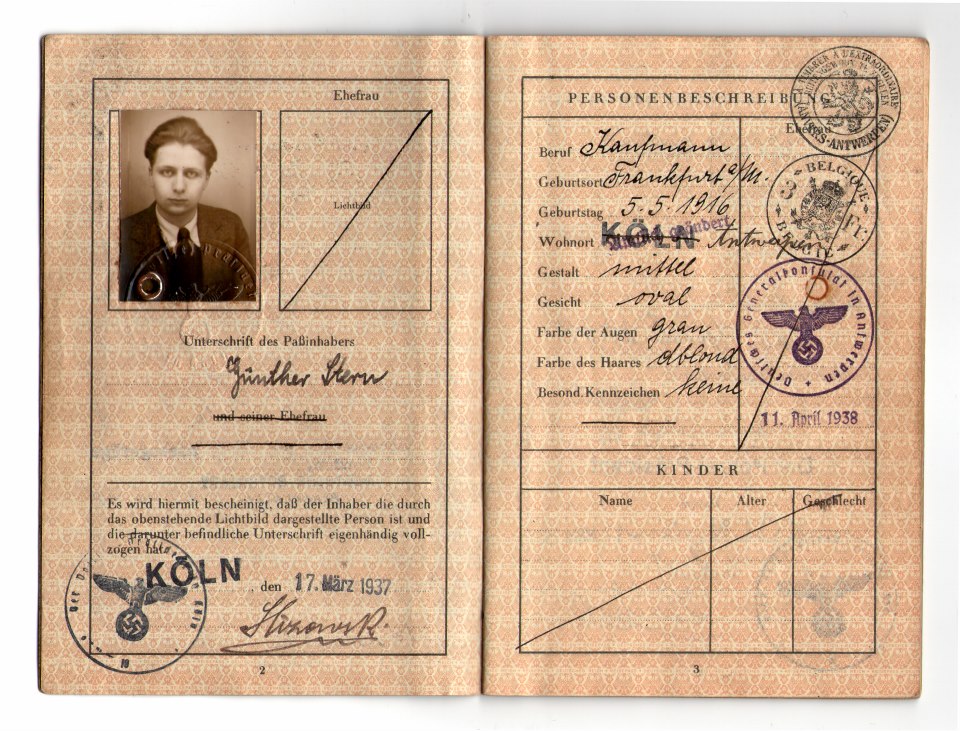 Ehefrau
Lichtbild
Unterschrift des Paßinhabers
Günther Stern
und seiner Ehefrau
Es wird hiermit bescheinigt, daß der Inhaber die durch
das obenstehende Lichtbild dargestellte Person ist und
die darunter befindliche Unterschrift eigenhändig voll-
zogen hat.
KÖLN, den 17. März 1937
2
PERSONENBESCHREIBUNG
Ehefrau
Beruf Kaufmann
Geburtsort Frankfurt a/M.
Geburtstag 5.5.1916
Wohnort KÖLN Antwerpen
Gestalt mittel
Gesicht oval
Farbe der Augen grau
Farbe des Haares dblond
Besond. Kennzeichen keine
BELGIQUE
3 Fr.
BELGIË
Deutsches Generalkonsulat in Antwerpen
11. April 1938
KINDER
Name Alter Geschlecht
3